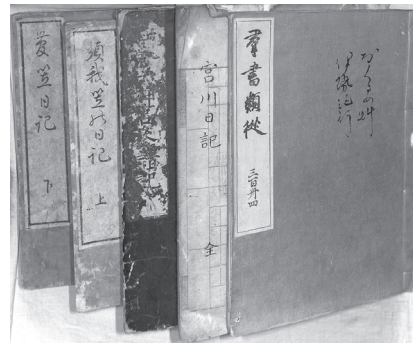 伊勢紀行
羣書類從
三百卅四
宮川日記 全
須我笠の日記 上
菅笠日記 下